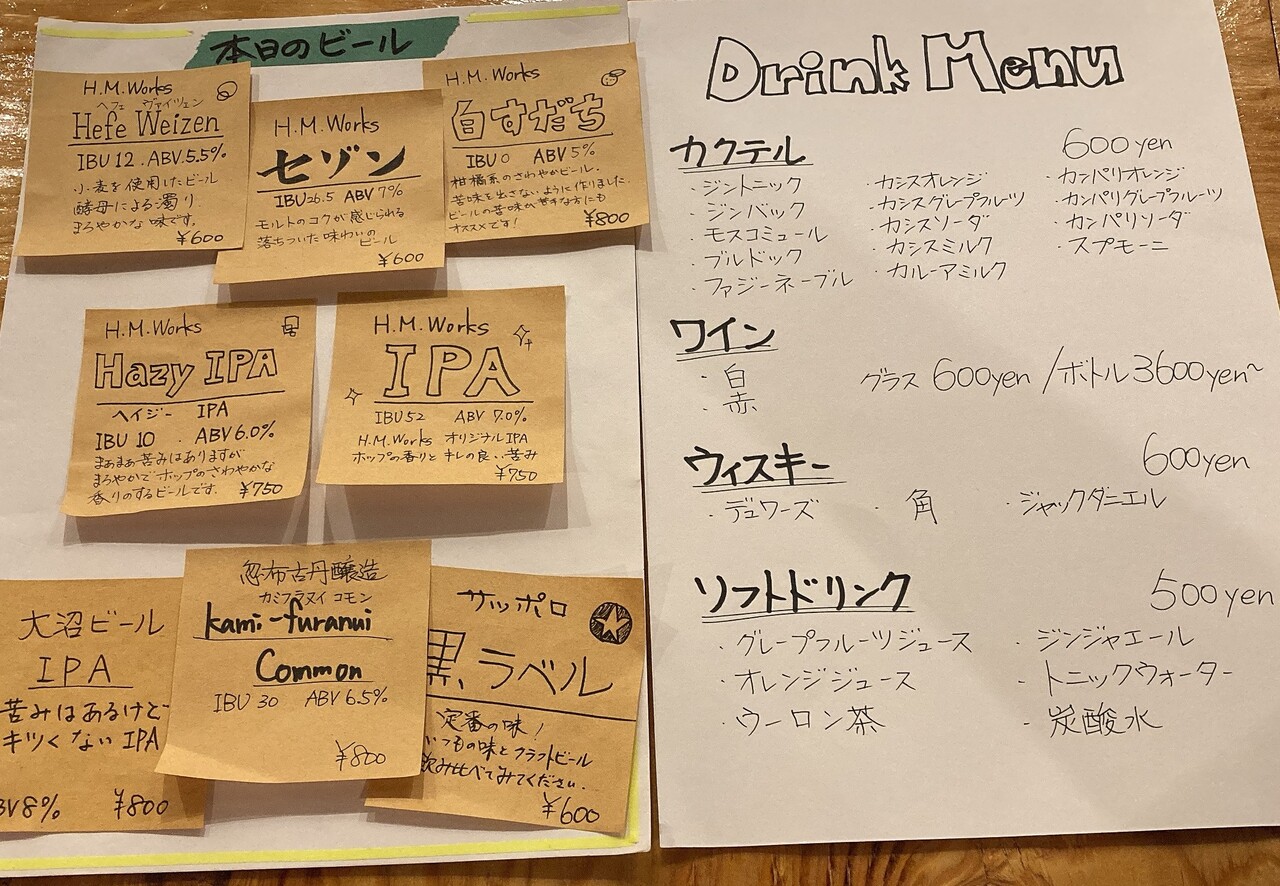 本日のビール
H.M.Works
ヘフェ ヴァイツェン
Hefe Weizen
IBU 12 . ABV.5.5%
小麦を使用したビール
酵母による濁り
まろやかな味です。
¥600
H.M.Works
セゾン
IBU26.5 ABV 7%
モルトのコクが感じられる
落ちついた味わいの
ビール
¥600
H.M.Works
白すだち
IBU 0 ABV 5%
柑橘系のさわやかビール.
苦味を出さないように作りました.
ビールの苦味が苦手な方にも
オススメです!
¥800
H.M.Works
Hazy IPA
ヘイジー IPA
IBU 10 . ABV6.0%
まあまあ苦みはありますが
まろやかでホップのさわやかな
香りのするビールです。 ¥750
H.M.Works
IPA
IBU 52 ABV 7.0%
H.M.Works オリジナルIPA
ホップの香りとキレの良い苦み
¥750
大沼ビール
IPA
苦みはあるけど
キツくないIPA
BV8% ¥800
忽布古丹醸造
カミフラヌイ コモン
kami-furanui
Common
IBU 30 ABV 6.5%
¥800
サッポロ
黒ラベル
定番の味!
いつもの味とクラフトビール
飲み比べてみてください.
¥600
Drink Menu
カクテル 600yen
・ジントニック ・カシスオレンジ ・カンパリオレンジ
・ジンバック ・カシスグレープフルーツ ・カンパリグレープフルーツ
・モスコミュール ・カシスソーダ ・カンパリソーダ
・ブルドック ・カシスミルク ・スプモーニ
・ファジーネーブル ・カルーアミルク
ワイン
・白 グラス 600yen /ボトル3600yen~
・赤
ウィスキー 600yen
・デュワーズ ・角 ・ジャックダニエル
ソフトドリンク 500yen
・グレープフルーツジュース ・ジンジャエール
・オレンジジュース ・トニックウォーター
・ウーロン茶 ・炭酸水